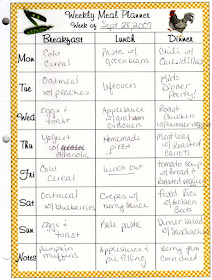 Weekly Meal Planner
Week of Sept 28, 2009
Breakfast Lunch Dinner
Mon
Cold Cereal
Pasta w/ green beans
Chili w/ Quesadillas
Tue
Oatmeal w/ peaches
leftovers
Kids Dinner Party!
Wed
Eggs & toast
Applesauce w/ graham crackers
Roast Chicken
Thu
Yogurt w/ granola
Homemade pizza
Meat loaf w/ Roasted Carrots
Fri
Cold Cereal
lunch out
Tomato Soup w/ bread & Roasted veggies
Sat
Oatmeal w/ blueberries
Crepes w/ berry sauce
Fried Rice w/
Sun
Eggs & toast
Kids pasta
Dinner salad w/
Notes
Pumpkin muffins
Applesauce & pie filling
Berry jam
corn dried